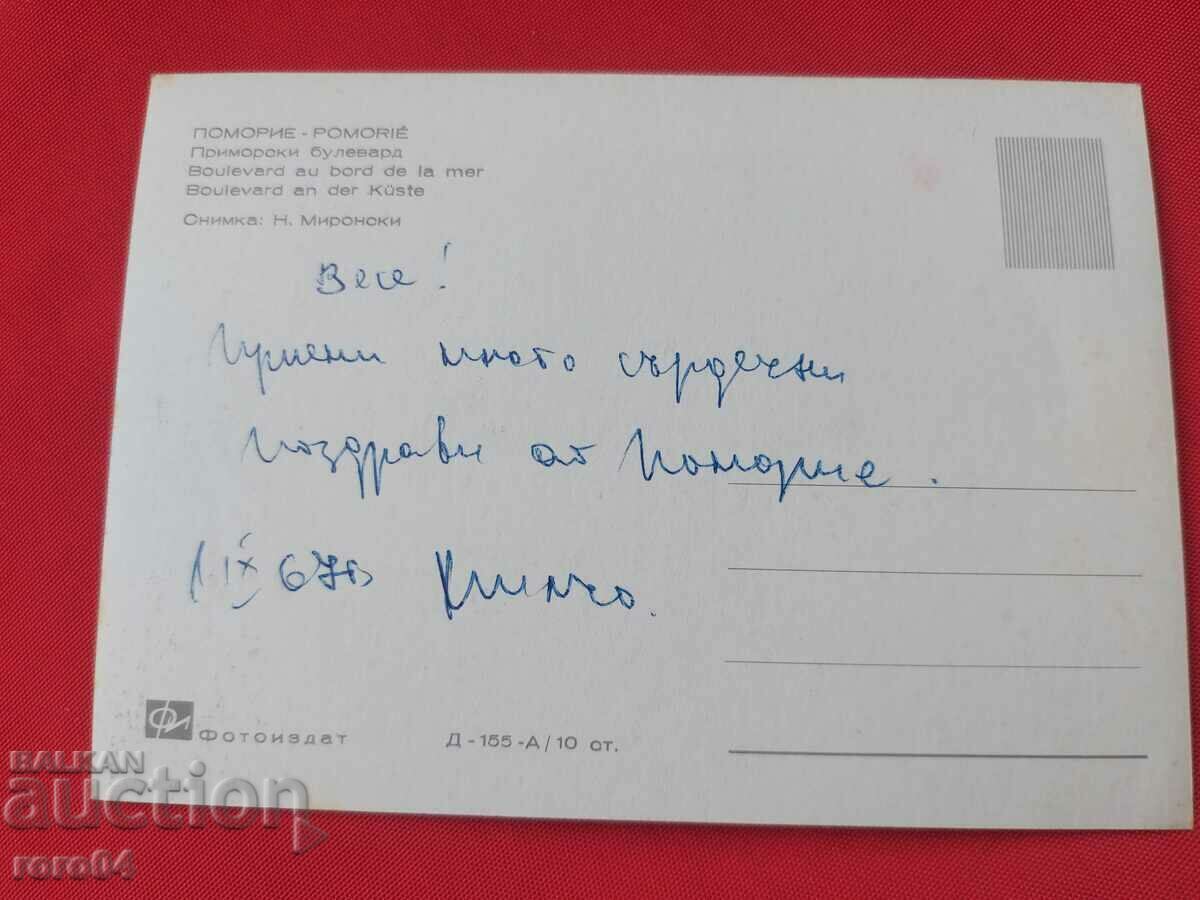 ПОМОРИЕ - POMORIÉ
Приморски булевард
Boulevard au bord de la mer
Boulevard an der Küste
Снимка: Н. Миронски
Весе!
Приеми много сърдечни
поздрави от Поморие.
1 IX 67г Кинчо.
Фотоиздат
Д-155-А/10 ст.
BALKAN
auction
roro04